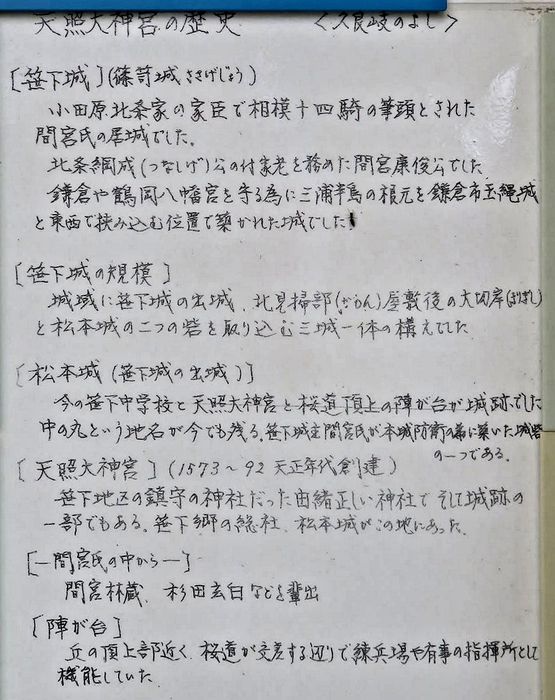 天照大神宮の歴史 <久良岐のよし>
[笹下城](篠笥城 ささげじょう)
小田原北条家の家臣で相模十四騎の筆頭とされた
間宮氏の居城でした。
北条綱成(つなしげ)公の付家老を務めた間宮康俊公でした
鎌倉や鶴岡八幡宮を守る為に三浦半島の根元を鎌倉市玉縄城
と東西で挟み込む位置で築かれた城でした
[笹下城の規模]
城域に笹下城の出城、北見掃部(かもん)屋敷後の大切岸(きりぎし)
と松本城の二つの砦を取り込む三城一体の構えでした
[松本城(笹下城の出城)]
今の笹下中学校と天照大神宮と桜道頂上の陣が台が城跡でした
中の丸という地名が今でも残る。笹下城主間宮氏が本城防衛の為に築いた城砦
の一つである。
[天照大神宮](1573~92 天正年代創建)
笹下地区の鎮守の神社だった由緒正しい神社で そして城跡の
一部でもある。笹下郷の総社、松本城がこの地にあった
[ー間宮氏の中からー]
間宮林蔵、杉田玄白などを輩出
[陣が台]
丘の頂上部近く、桜道が交差する辺りで練兵場や有事の指揮所として
機能していた